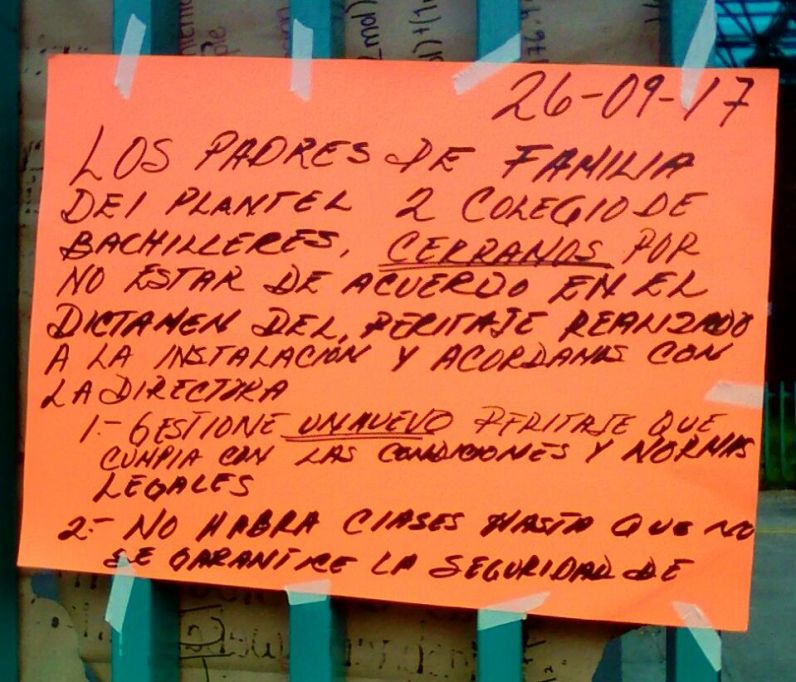 26-09-17
LOS PADRES DE FAMILIA
DEl PLANTEL 2 COLEGIO DE
BACHILLERES, CERRAMOS POR
NO ESTAR DE ACUERDO EN EL
DICTAMEN DEL PERITAJE REALIZADO
A LA INSTALACIÓN Y ACORDAMOS CON
LA DIRECTORA
1.- GESTIONE UN NUEVO PERITAJE QUE
CUMPlA CON LAS CONDICIONES Y NORMAS
LEGALES
2.- NO HABRA ClASES HASTA QUE NO
SE GARANTICE LA SEGURIDAD DE